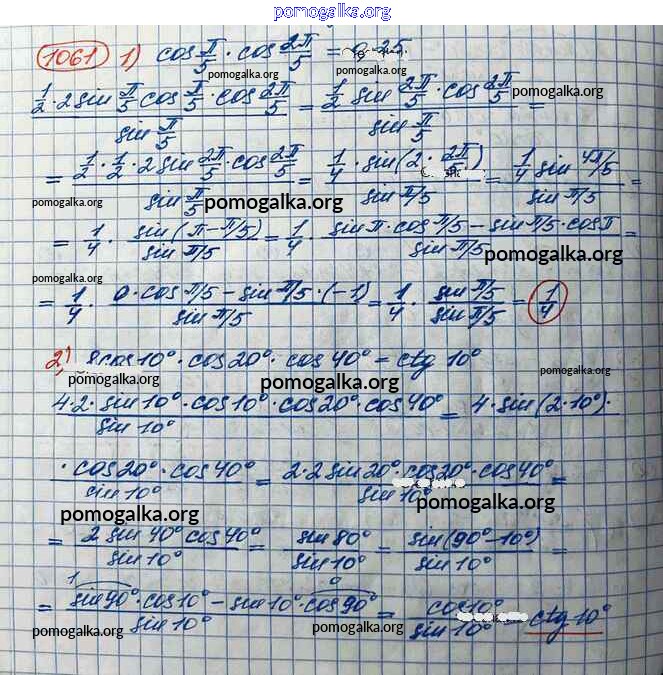 pomogalka.org
1061 1) cos π/5 · cos 2π/5 = 0,25.
pomogalka.org pomogalka.org
(1/2 · 2 sin π/5 cos π/5 · cos 2π/5) / (sin π/5) = (1/2 sin 2π/5 · cos 2π/5) / (sin π/5) =
pomogalka.org
= (1/2 · 1/2 · 2 sin 2π/5 · cos 2π/5) / (sin π/5) = (1/4 · sin(2 · 2π/5)) / (sin π/5) = (1/4 sin 4π/5) / (sin π/5) =
pomogalka.org pomogalka.org
= 1/4 · (sin(π - π/5)) / (sin π/5) = 1/4 · (sin π · cos π/5 - sin π/5 · cos π) / (sin π/5) =
pomogalka.org
pomogalka.org
= 1/4 · (0 · cos π/5 - sin π/5 · (-1)) / (sin π/5) = 1/4 · (sin π/5) / (sin π/5) = 1/4
2) 8 cos 10° · cos 20° · cos 40° = ctg 10°
pomogalka.org pomogalka.org pomogalka.org
(4 · 2 · sin 10° · cos 10° · cos 20° · cos 40°) / (sin 10°) = 4 · sin(2 · 10°) ·
(· cos 20° · cos 40°) / (sin 10°) = (2 · 2 sin 20° · cos 20° · cos 40°) / (sin 10°) =
pomogalka.org pomogalka.org
= (2 sin 40° cos 40°) / (sin 10°) = (sin 80°) / (sin 10°) = (sin(90° - 10°)) / (sin 10°) =
1 0
= (sin 90° · cos 10° - sin 10° · cos 90°) / (sin 10°) = (cos 10°) / (sin 10°) = ctg 10°
pomogalka.org pomogalka.org pomogalka.org